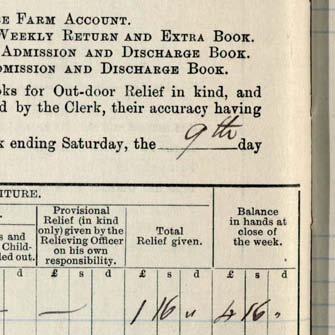 SE FARM ACCOUNT.
WEEKLY RETURN AND EXTRA BOOK.
ADMISSION AND DISCHARGE BOOK.
DMISSION AND DISCHARGE BOOK.
oks for Out-door Relief in kind, and
d by the Clerk, their accuracy having
k ending Saturday, the 9th day
ITURE.
s and
Child-
ded out.
Provisional
Relief (in kind
only) given by the
Relieving Officer
on his own
responsibility.
Total
Relief given.
Balance
in hands at
close of
the week.
s d £ s d £ s d £ s d
— — 1 16 " 4 16 "